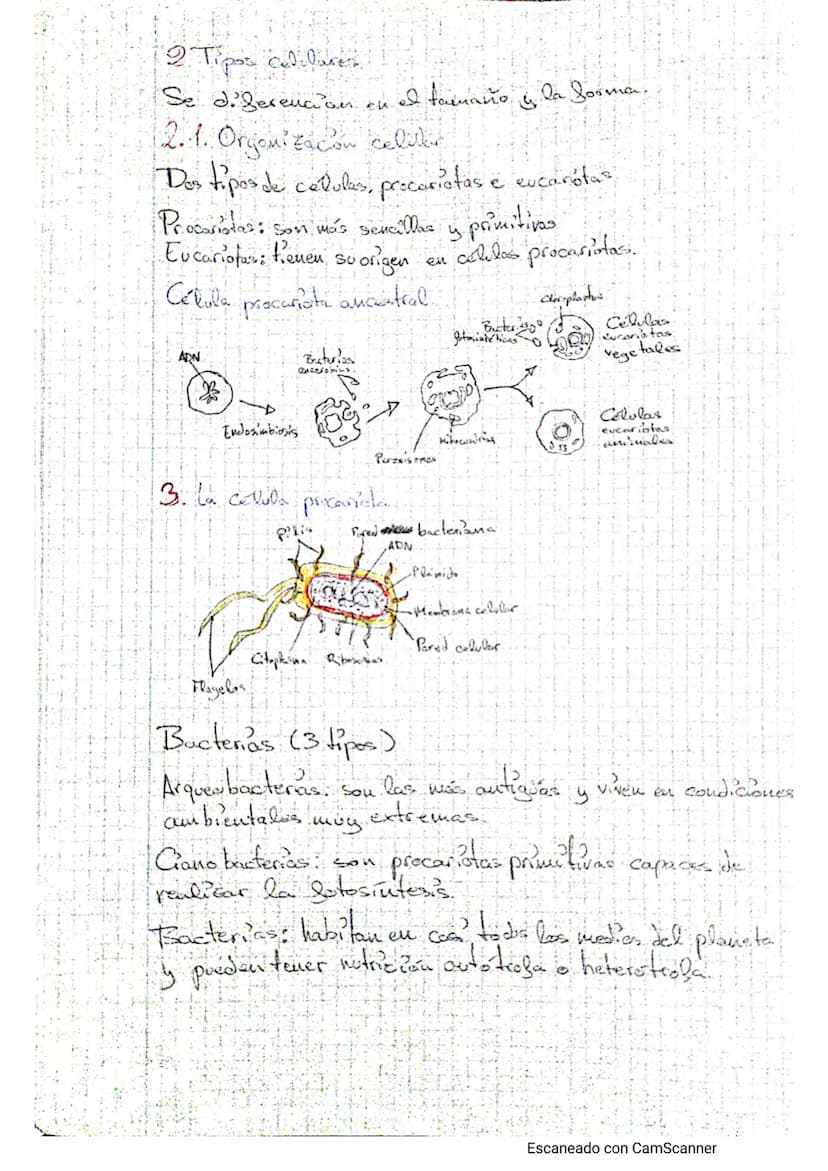 2 Tipos celulares
Se diferencian en el tamaño y la forma.
2.1. Organización celular
Dos tipos de células, procariotas e eucariotas
Procariotas: son más sencillas y primitivas
Eucariotas: tienen su origen en células procariotas.
Célula procariota ancestral
ADN
Endosimbiosis
Bacterias
Peroxisomas
Mitocondrias
Bacterias
fotosintéticas
Cloroplastos
Células
eucariotas
vegetales
Células
eucariotas
animales
3. La célula procariota
Pilis
Pared bacteriana
ADN
Plásmido
Membrana celular
Pared celular
Ribosomas
Citoplasma
Flagelos
Bacterias (3 tipos)
Arqueobacterias: son las más antiguas y viven en condiciones
ambientales muy extremas.
Cianobacterias: son procariotas primitivas capaces de
realizar la fotosíntesis.
Bacterias: habitan en casi todos los medios del planeta
y pueden tener nutrición autótrofa o heterótrofa.
Escaneado con CamScanner